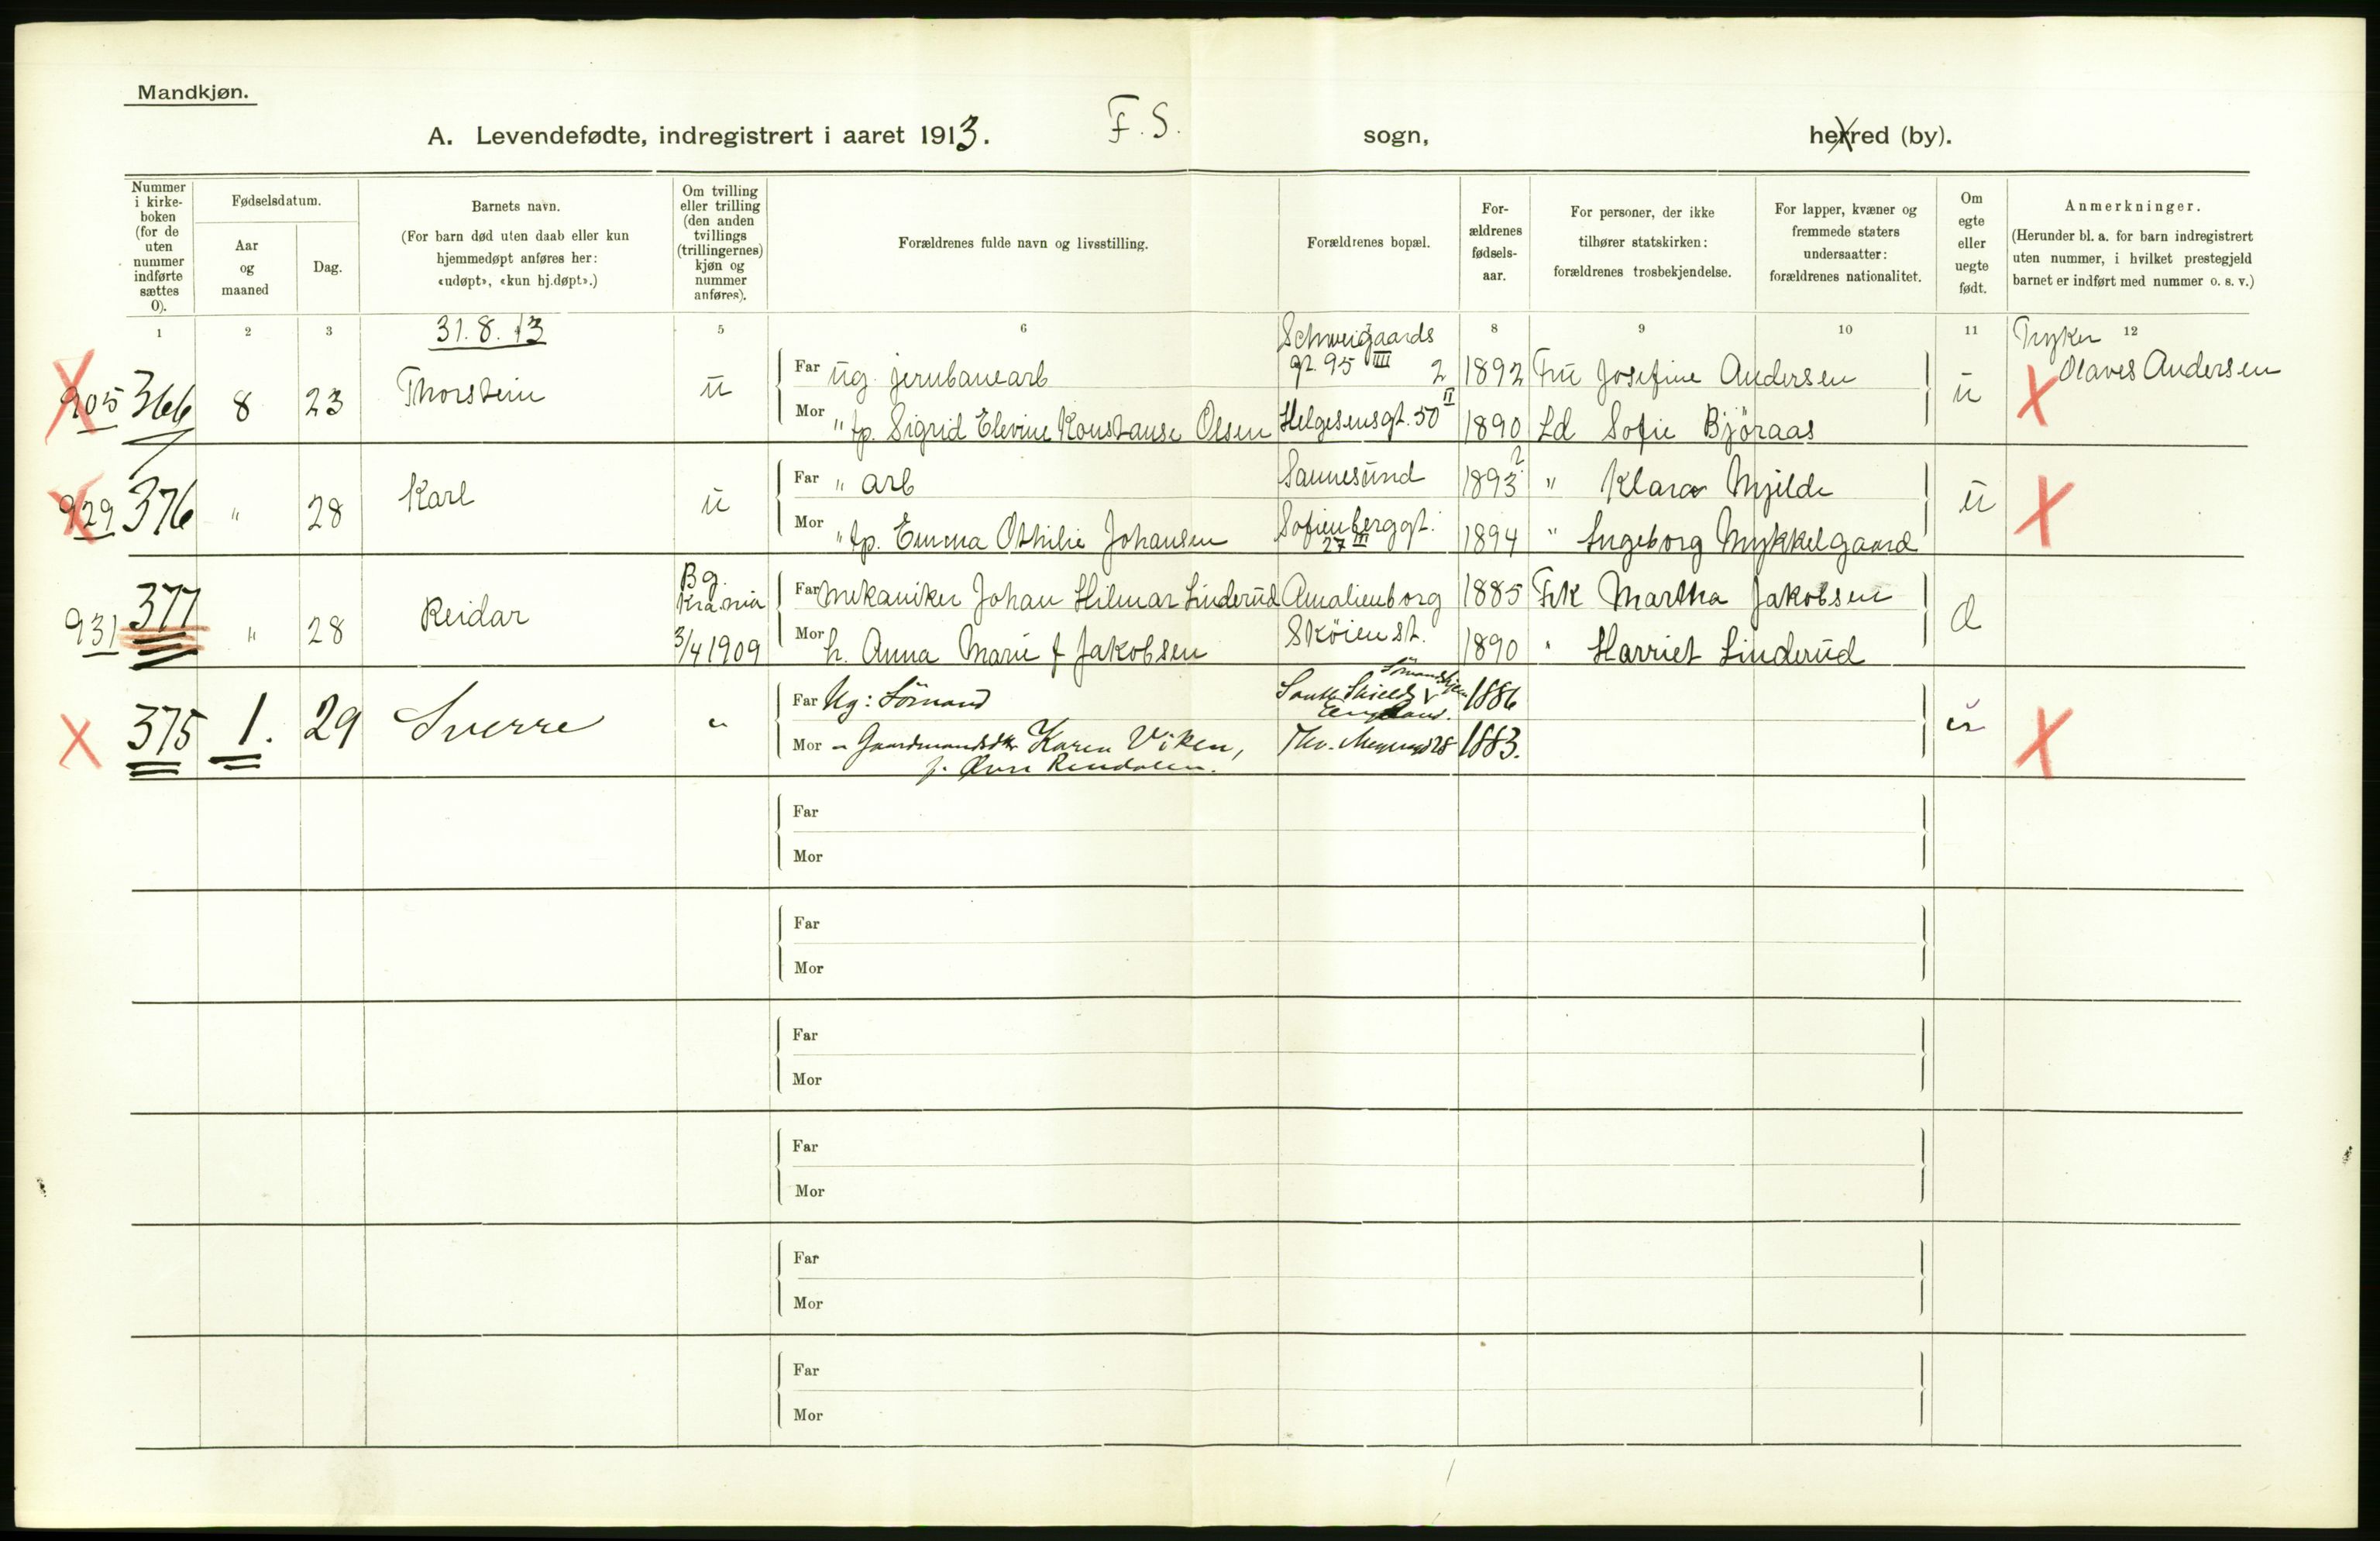 Mandkjøn.
A. Levendefødte, indregistrert i aaret 1913. F. S. sogn, herred (by).
Nummer i kirke-boken (for de uten nummer indførte sættes 0).
Fødselsdatum.
Aar og maaned
Dag.
Barnets navn.
(For barn død uten daab eller kun
hjemmedøpt anføres her:
«udøpt», «kun hj.døpt».)
Om tvilling eller trilling (den anden tvillings (trillingernes) kjøn og nummer anføres).
Forældrenes fulde navn og livsstilling.
Forældrenes bopæl.
For-ældrenes fødsels-aar.
For personer, der ikke
tilhører statskirken:
forældrenes trosbekjendelse.
For lapper, kvæner og
fremmede staters
undersaatter:
forældrenes nationalitet.
Om egte eller uegte født.
Anmerkninger.
(Herunder bl. a. for barn indregistrert
uten nummer, i hvilket prestegjeld
barnet er indført med nummer o. s. v.)
1 2 3 31.8.13 5 6 8 9 10 11 12
905 366 8 23 Thorstein u
Far ug. jernbanearb Schweigaards gt. 95 IIII 2 1892 Fru Josefine Andersen u Tryker Olaves Andersen
Mor " tp. Sigrid Elevine Konstanse Olsen Helgesensgt. 50 II 1890 Ld Sofie Björaas
929 376 " 28 Karl u
Far " arb Sannesund 1893 2 " Klara Mjelde u
Mor " tp. Emma Othilie Johansen Sofienberggt. 27 III 1894 " Ingeborg Mykkelgaard
931 377 " 28 Reidar Bg. Kra.nia 3/4 1909
Far Mekaniker Johan Hilmar Linderud Amalienborg 1885 Frk Martha Jakobsen
Mor h. Anna Marie f Jakobsen Sköien st. 1890 " Harriet Linderud
375 1. 29 Sverre "
Far Ug: Sömand South Shields England. 1886 u
Mor " Karen Viken, 1883.
f. Øvre Rendalen.
Far
Mor
Far
Mor
Far
Mor
Far
Mor
Far
Mor
Far
Mor